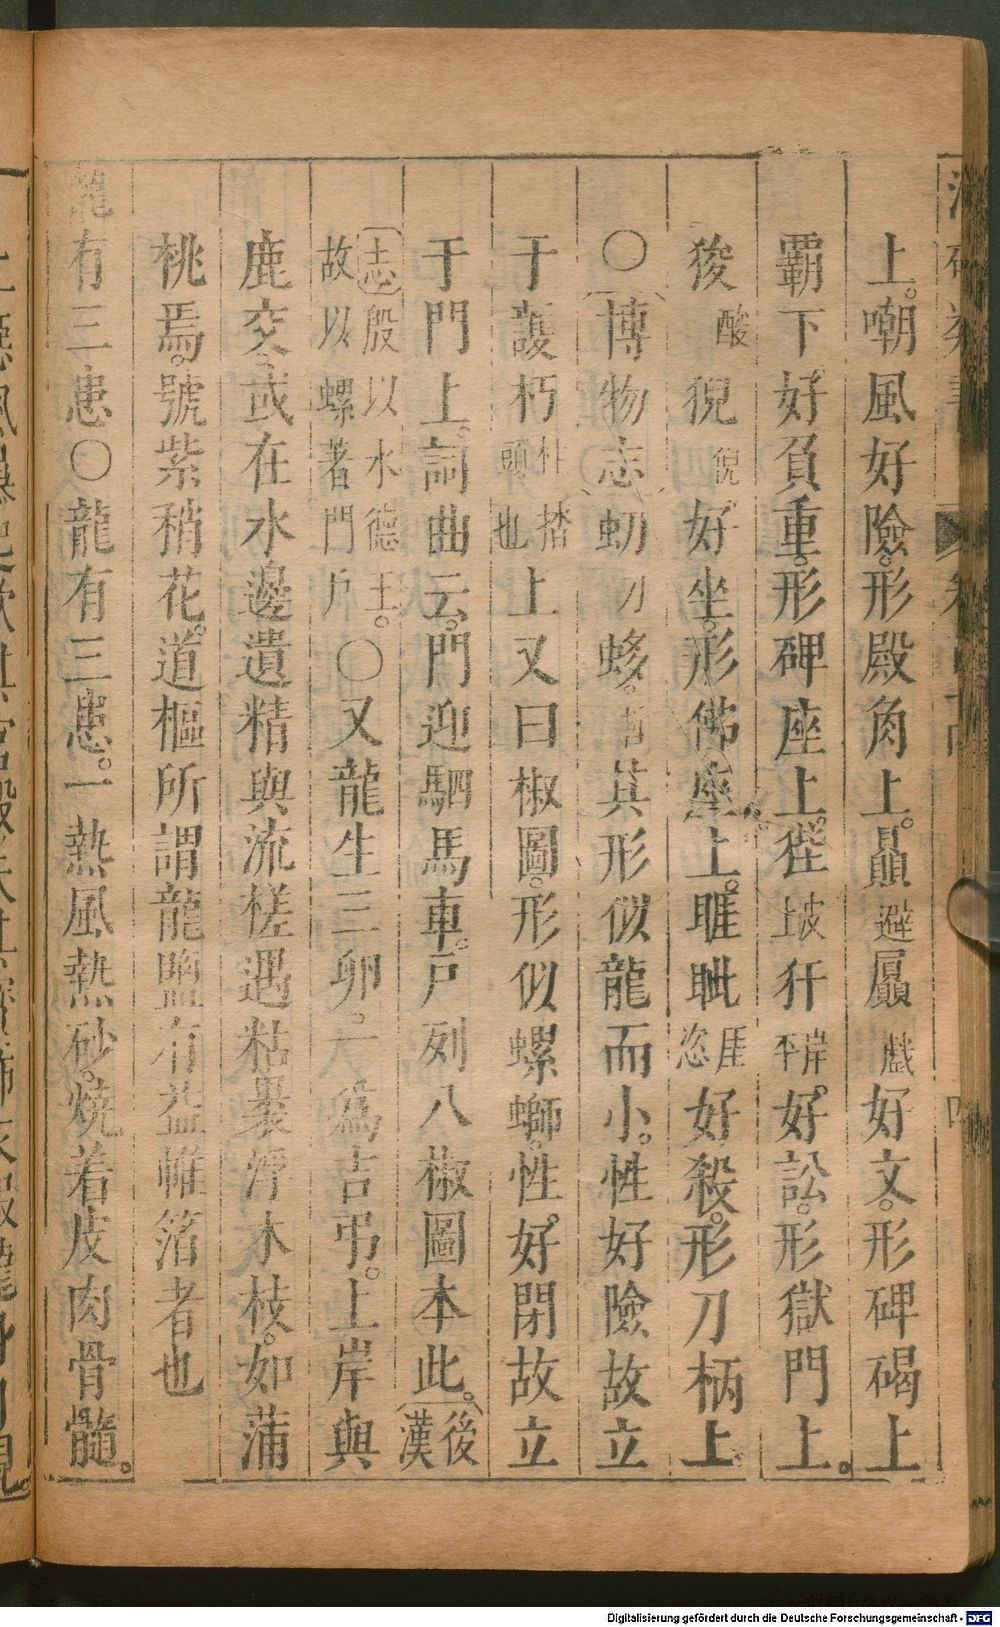 上。嘲風好險。形殿角上。贔避屭戲好文。形碑碣上
覇下。好負重。形碑座上。狴坡上犴岸平。好訟。形獄門上。
狻酸猊倪。好坐。形佛座上。睚厓眦恣好殺。形刀柄上
〇博物志䖡刀蛥。其形似龍而小。性好險故立
于護朽頭也上又曰椒圖。形似螺螄。性好閉故立
于門上。詞曲云。門迎駟馬車。戶列八椒圖本此。後漢
志殷以水德王。故以螺著門戶。〇又龍生三卵。一爲吉弔。上岸與
鹿交。或在水邊遺精與流槎遇粘褁浮木枝。如蒲
桃焉。號紫稍花。道樞所謂龍鹽有益帷箔者也
龍有三患〇龍有三患。一熱風熱砂。燒着皮肉骨髓。
Digitalisierung gefördert durch die Deutsche Forschungsgemeinschaft - DFG